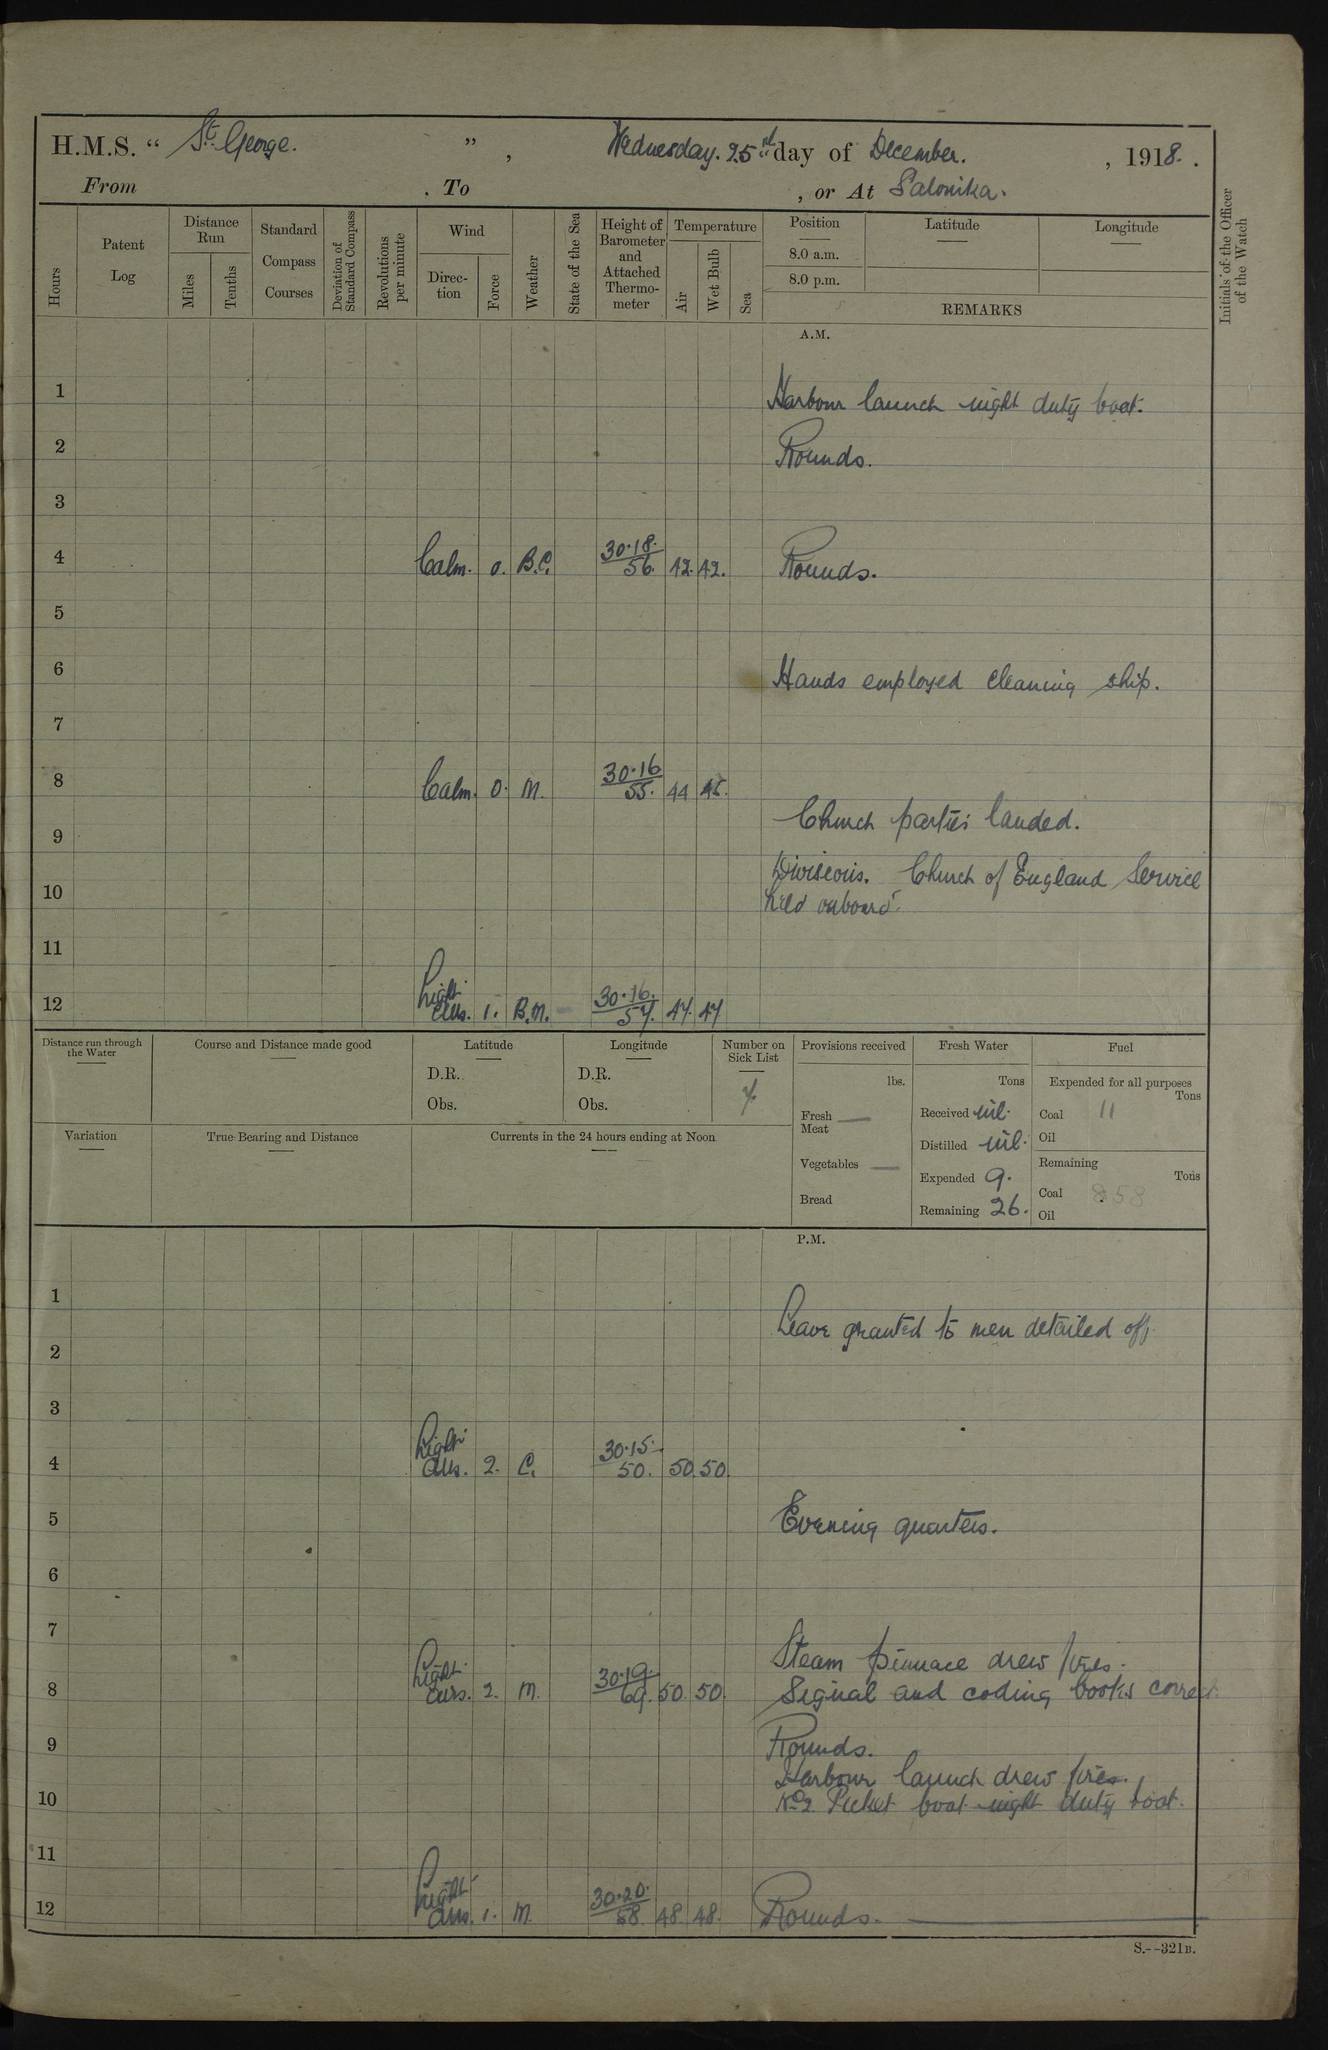 H.M.S. “ St. George. ” , Wednesday. 25 day of December. , 1918.
From . To , or At Salonika.
Hours
Patent Log
Distance Run
Miles
Tenths
Standard Compass Courses
Deviation of Standard Compass
Revolutions per minute
Wind
Direction
Force
Weather
State of the Sea
Height of Barometer and Attached Thermometer
Temperature
Air
Wet Bulb
Sea
Position
8.0 a.m.
8.0 p.m.
Latitude
Longitude
REMARKS
Initials of the Officer of the Watch
A.M.
1 Harbour launch night duty boat.
2 Rounds.
3
4 Calm. 0. B.C. 30.18. 56. 42. 42. Rounds.
5
6 Hands employed cleaning ship.
7
8 Calm. 0. M. 30.16 55. 44 45.
Church parties landed.
9
Divisions. Church of England Service
10 held onboard.
11
12 Light airs. 1. B.M. 30.16. 57. 47. 47
Distance run through the Water
Course and Distance made good
Latitude
D.R.
Obs.
Longitude
D.R.
Obs.
Number on Sick List
Provisions received
lbs.
Fresh Meat —
Vegetables —
Bread
Fresh Water
Tons
Received nil.
Distilled nil.
Expended 9.
Remaining 26.
Fuel
Expended for all purposes
Tons
Coal 11
Oil
Remaining
Tons
Coal 858
Oil
Variation
True Bearing and Distance
Currents in the 24 hours ending at Noon
P.M.
1
Leave granted to men detailed off
2
3
4 Light airs. 2. C. 30.15. 50. 50. 50.
5 Evening quarters.
6
7
Steam pinnace drew fires.
8 Light airs. 2. M. 30.19. 69. 50. 50. Signal and coding books correct.
9 Rounds.
Harbour launch drew fires.
10 No 2 Picket boat night duty boat.
11
12 Light airs. 1. M. 30.20. 58. 48. 48. Rounds.
S.--321B.